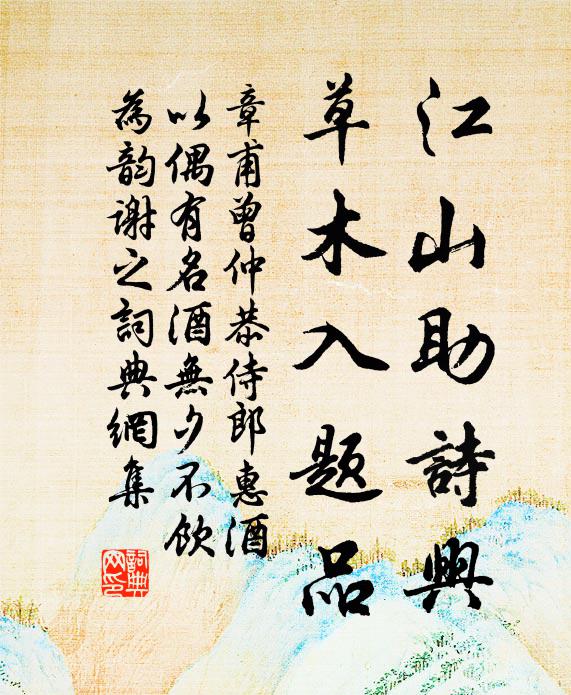 江山助詩興
草木入題品
章甫曾仲恭侍郎惠酒
以偶有名酒無夕不飲
為韵謝之詞典網集
詞典网印